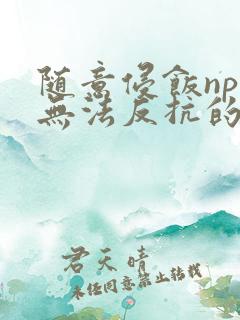 随意侵飯np
無法反抗的
君天晴
未经同意禁止转载